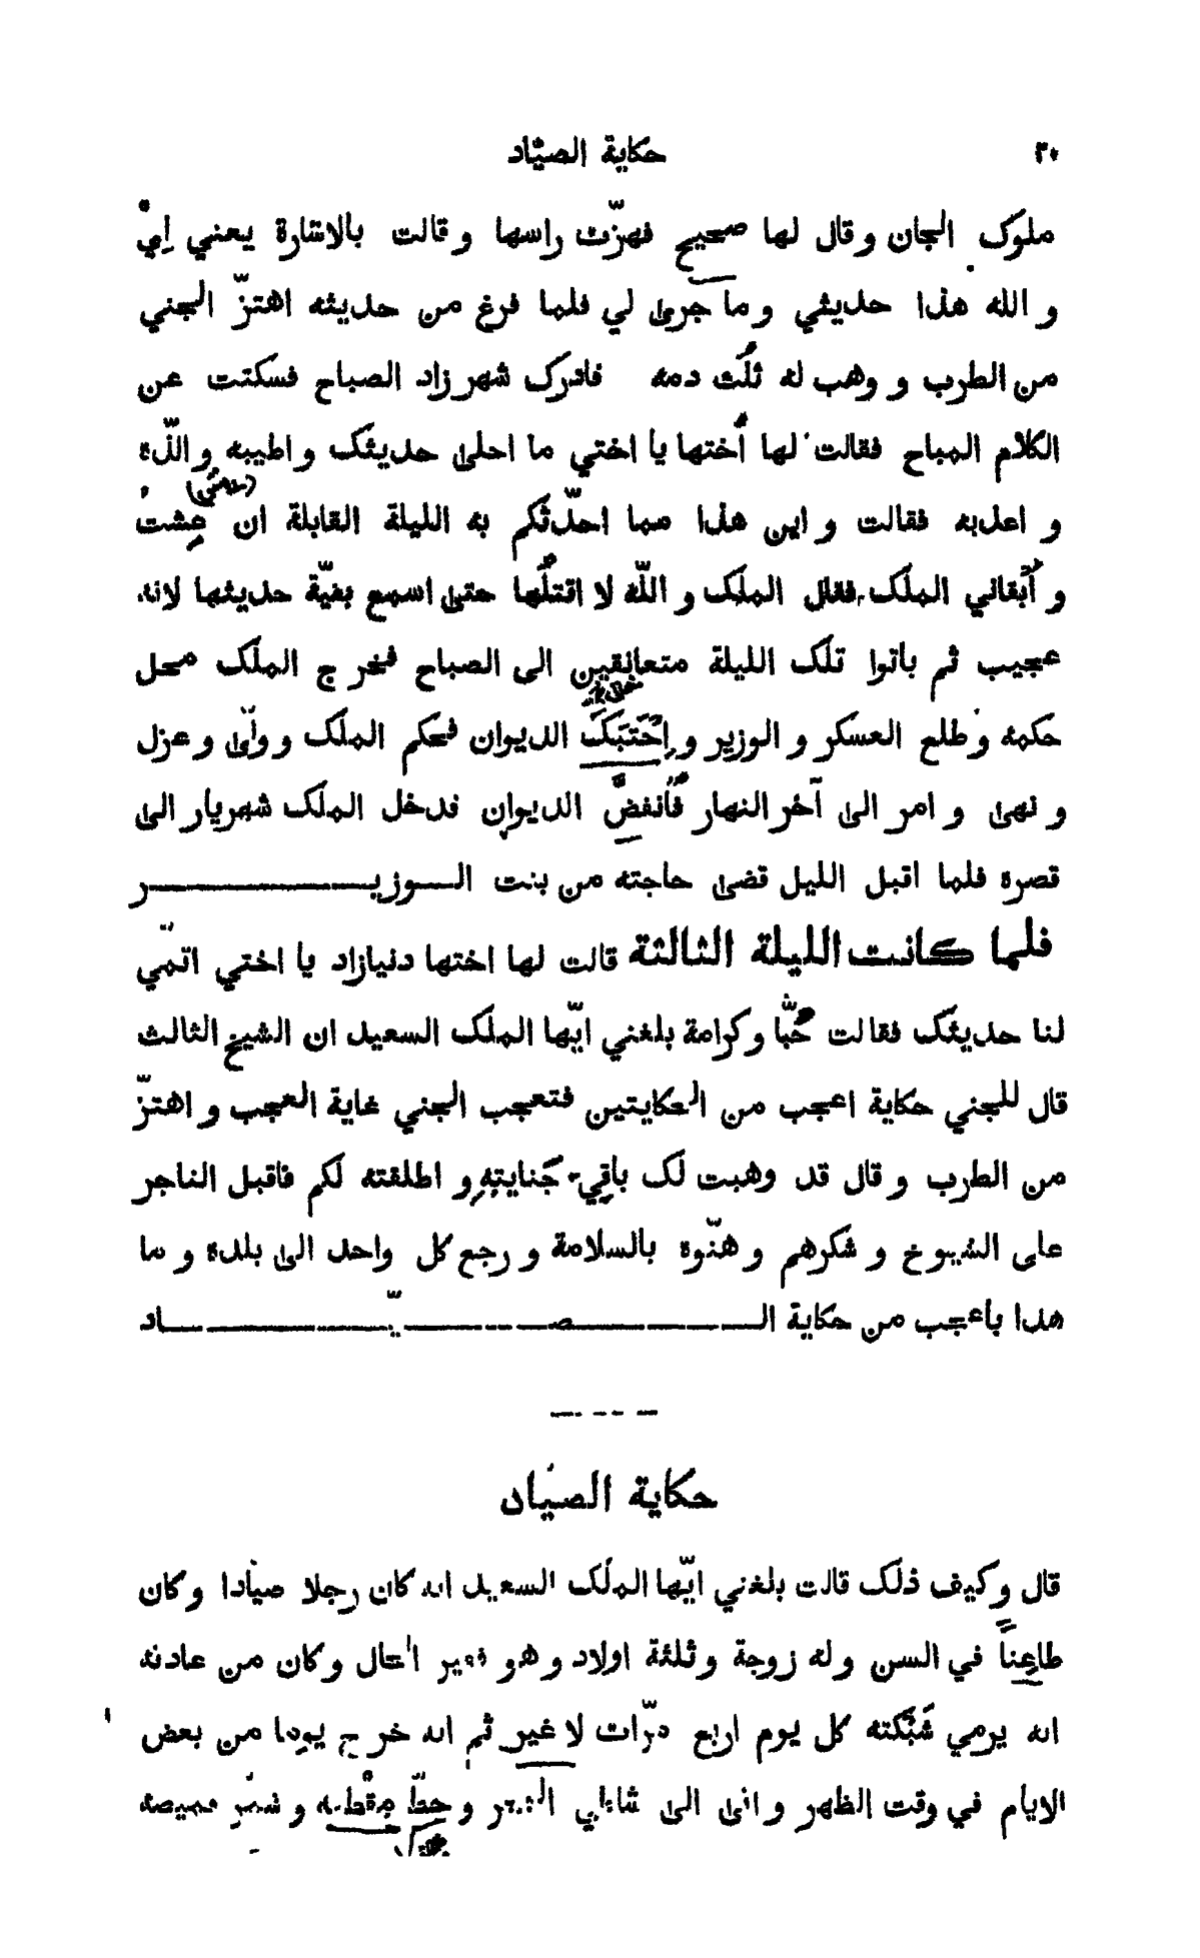 ٣٠ حكاية الصيّاد
ملوك الجان و قال لها صحيح فهزّت راسها و قالت بالاشارة يعني اِيْ
و الله هذا حديثي و ما جرى لي فلما فرغ من حديثه اهتزّ الجني
من الطرب و وهب له ثُلُث دمه فادرك شهرزاد الصباح فسكتت عن
الكلام المباح فقالت لها اُختها يا اختي ما احلى حديثك و اطيبه و الذّه
و اعذبه فقالت و اين هذا مما احدّثكم به الليلة القابلة ان عِشتُ
و أَبقاني الملك فقال الملك و اللّه لا اقتلُها حتى اسمع بقيّة حديثها لانه
عجيب ثم باتوا تلك الليلة متعانقين الى الصباح فخرج الملك محل
حكمه و طلع العسكر و الوزير و اِحْتَبَكَ الديوان فحكم الملك و ولّى و عزل
و نهى و امر الى آخر النهار فَاَنفضَّ الديوان فدخل الملك شهريار الى
قصره فلما اقبل الليل قضى حاجته من بنت الـــوزيـــــــر
فلما كانت الليلة الثالثة قالت لها اختها دنيازاد يا اختي اتمّي
لنا حديثك فقالت حُبًّا و كرامة بلغني ايّها الملك السعيد ان الشيخ الثالث
قال للجني حكاية اعجب من الحكايتين فتعجب الجني غاية العجب و اهتزّ
من الطرب و قال قد وهبت لك باقي جنايته و اطلقته لكم فاقبل التاجر
على الشيوخ و شكرهم و هنّوه بالسلامة و رجع كل واحد الى بلده و ما
هذا باعجب من حكاية الـــــصـــــيّـــــاد
حكاية الصيّاد
قال و كيف ذلك قالت بلغني ايّها الملك السعيد انه كان رجلا صيّادا و كان
طاعِناً في السن و له زوجة و ثلثة اولاد و هو فقير الحال و كان من عادته
انه يرمي شَبَكته كل يوم اربع مرّات لا غير ثم انه خرج يوما من بعض
الايام في وقت الظهر و اتى الى شاطي البحر و حطّ مِقْطفه و شمّر قميصه